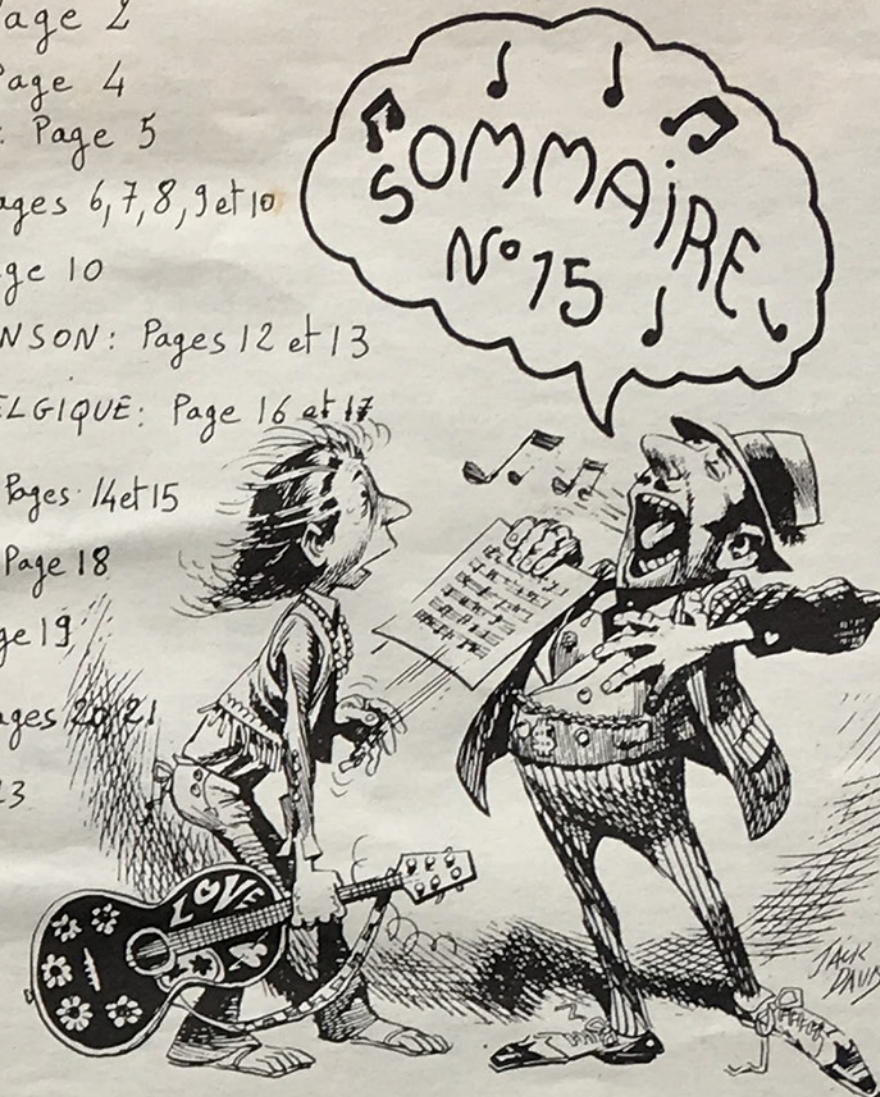 Page 2
Page 4
: Page 5
ages 6,7,8,9 et 10
ge 10
NSON: Pages 12 et 13
ELGIQUE: Page 16 et 17
Pages 14 et 15
Page 18
ge 19
ages 20 21
23
SOMMAiRE
N° 15
LOVE
JACK
DAVIS